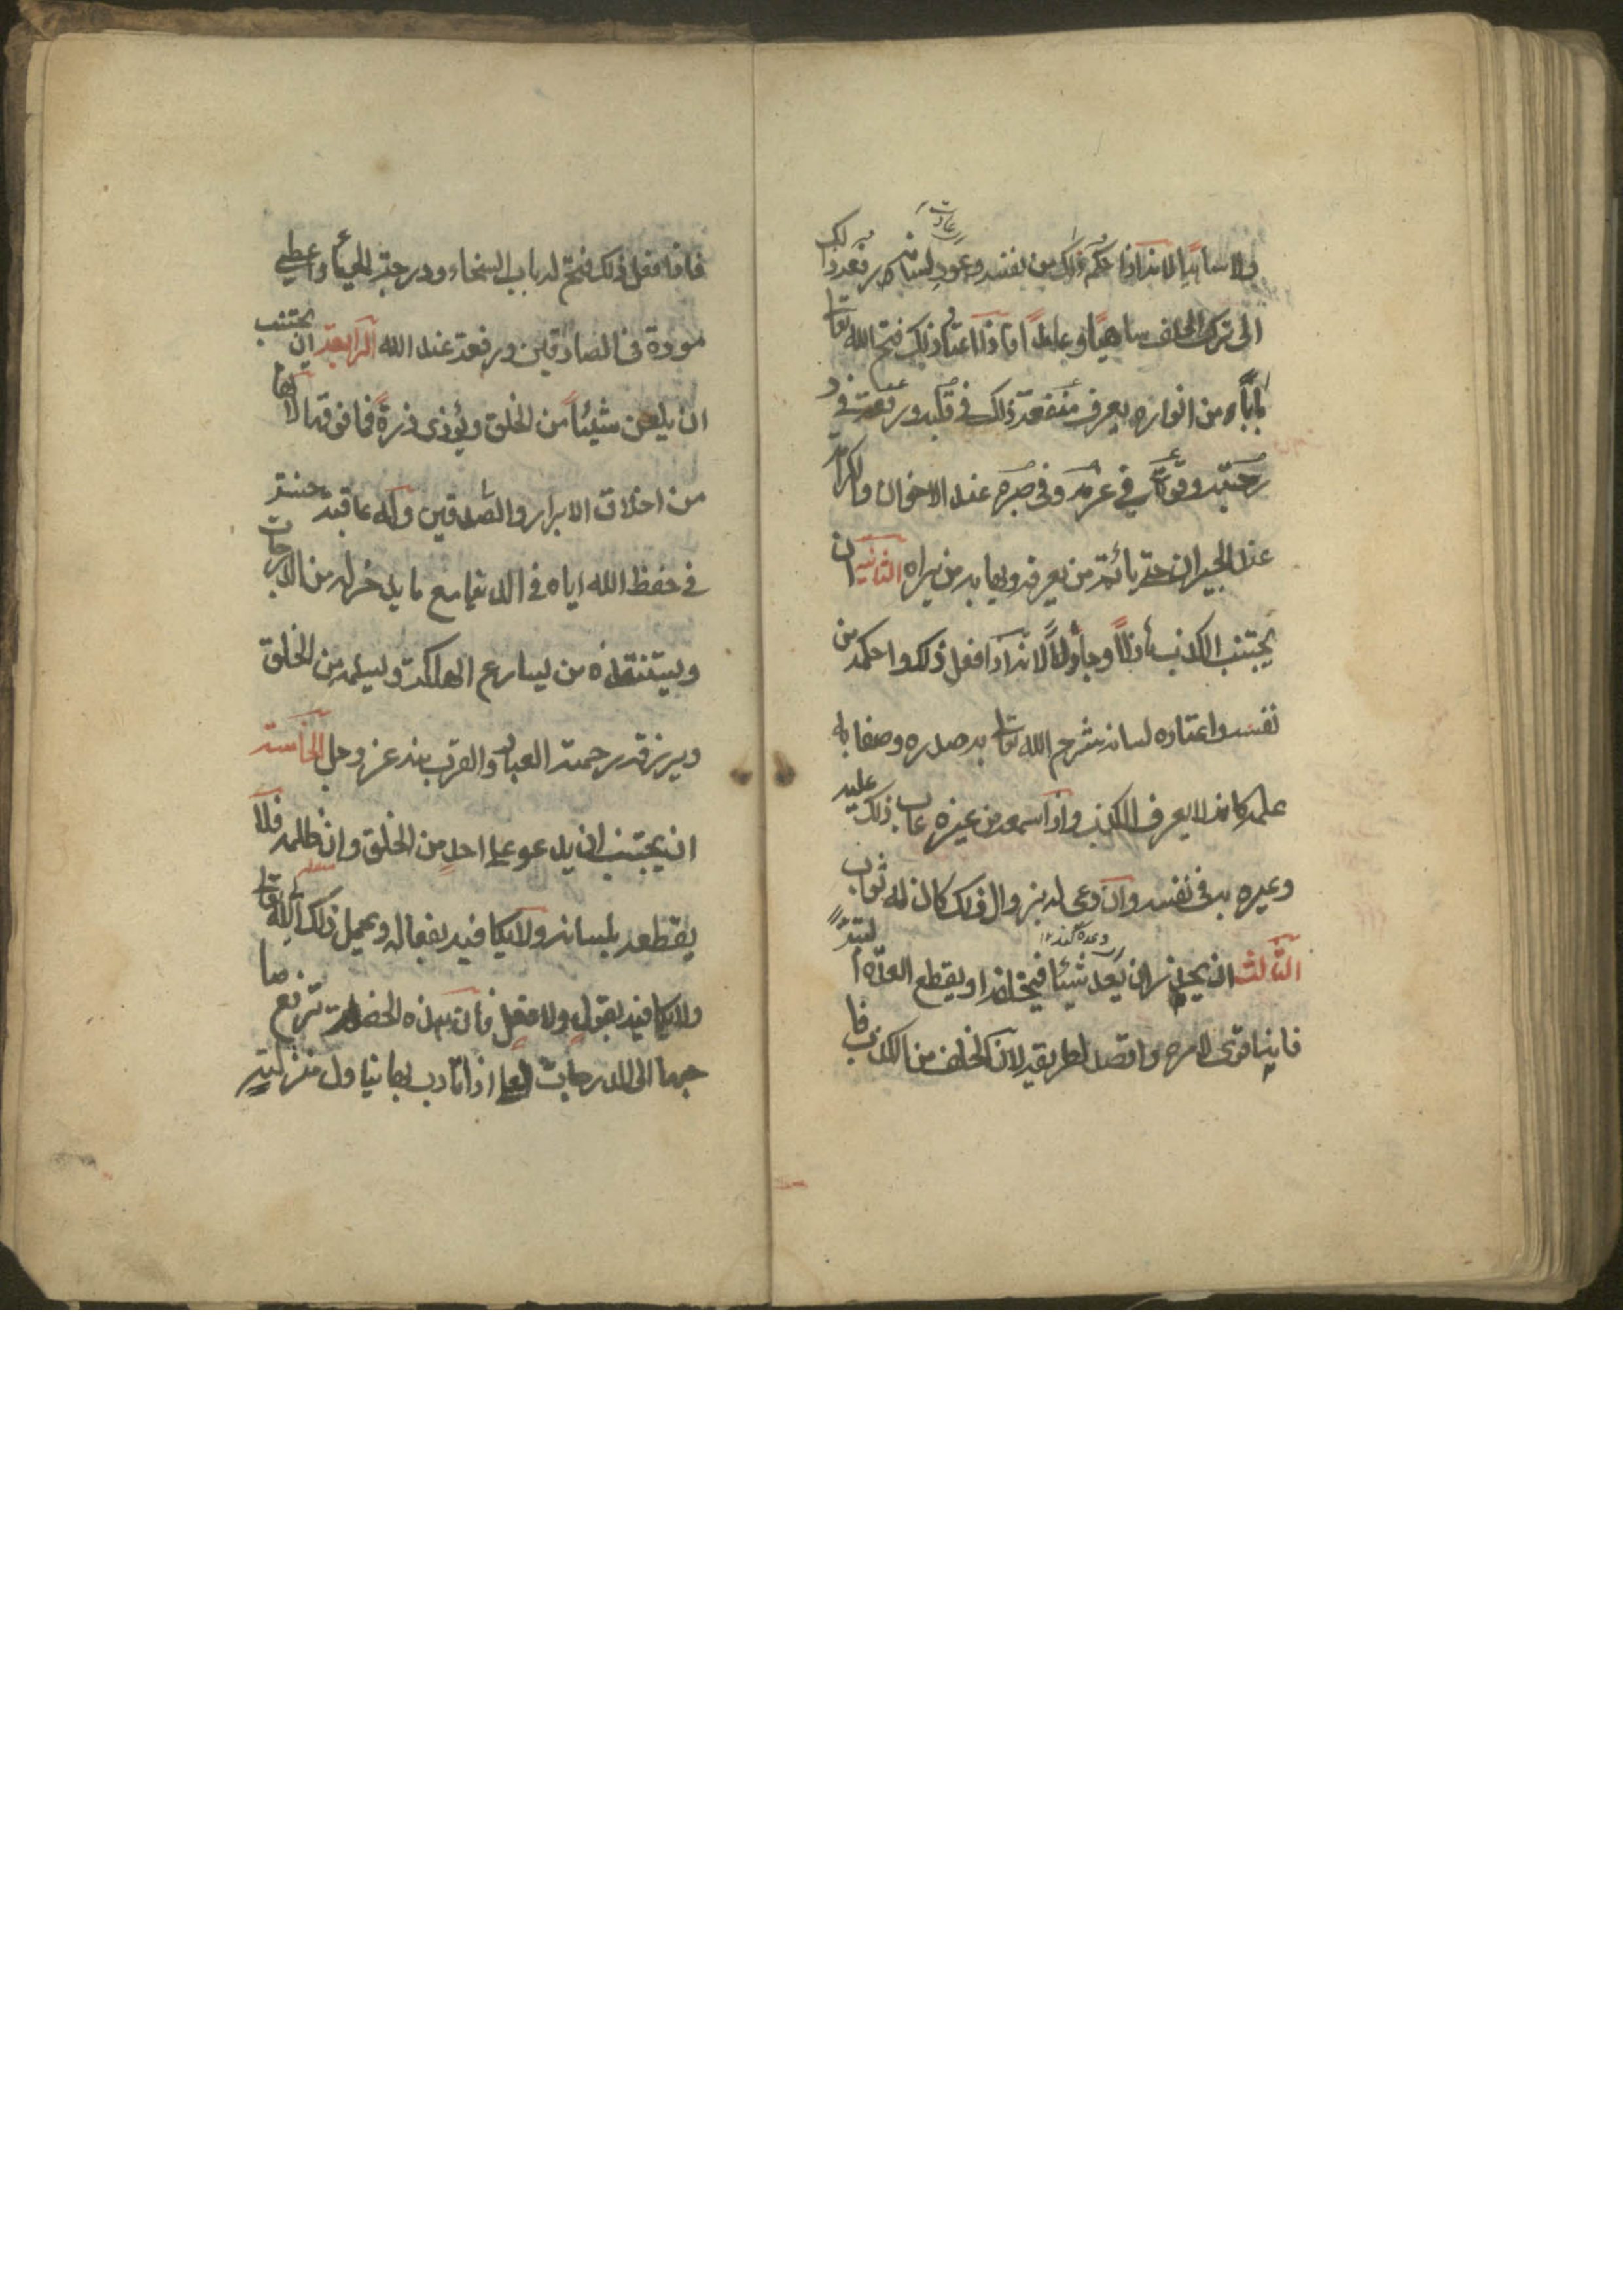 ولا ساهيا لانه اذا احكم ذلك من نفسه وعود لسانه رفعه ذلك
عادت
الى ترك الحلف ساهيا وعامدا فاذا اعتاد ذلك فتح الله تعا
بابا من انواره يعرف منفعة ذلك في قلبه ورفعة في د
رجته وقوة في عزمه وفي صبره عند الاخوان والكرامة
عند الجيران حتى يأتمر من يعرفه ويهابه من يراه الثانية ان
يجتنب الكذب هازلا وجادا لانه اذا فعل ذلك واحكمه من
نفسه واعتاده لسانه شرح الله تعا به صدره وصفا به
علمه كانه لا يعرف الكذب واذا سمعه من غيره عاب ذلك عليه
وعيره به في نفسه وان دعى له بزوال ذلك كان له ثواب
وعده كند ١٢
الثالثة ان يحذر ان يعد شيئا فيخلفه او يقطع العدة البتة
فانها اقوى لامره واقصد لطريقه لان الخلف من الكذب فا
فاذا فعل ذلك فتح له باب السخاء ودرجة الحياء واعطى
مودة في الصادقين ورفعة عند الله الرابعة ان يجتنب
ان يلعن شيئا من الخلق ويؤذى ذرة فما فوقها لانها
من اخلاق الابرار والصدقين وله عاقبة حسنة
في حفظ الله اياه في الدنيا مع ما يدخر له من الدرجات
ويستنقذه من يسارع الهلكة ويسلمه من الخلق
ويرزقه رحمة العباد والقرب منه عز وجل الخامسة
ان يجتنب ان يدعو على احد من الخلق وان ظلمه فلا
يقطعه بلسانه ولا يكافيه بفعاله ويحمل ذلك لله تعا
ولا يكافيه بقول ولا فعل فان هذه الخصلة ترفع صا
حبها الى الدرجات العلى اذا تأدب بها ينا ول منزلة